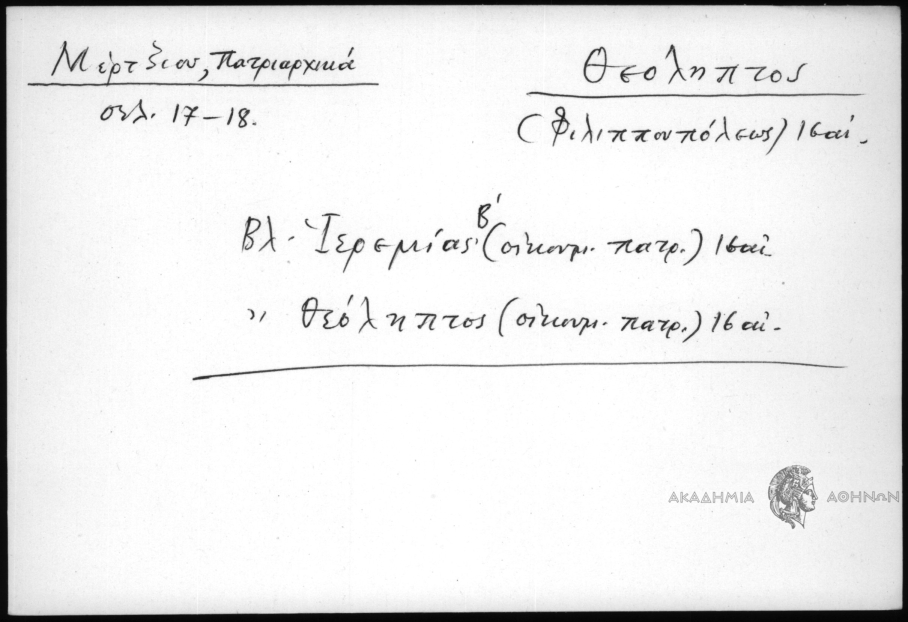 Μέρτζιου, Πατριαρχικά
σελ. 17-18.
Θεόληπτος
(Φιλιππουπόλεως) 16 αἰ.
Βλ. Ἱερεμίας Β΄ (οἰκουμ. πατρ.) 16 αἰ.
〃 Θεόληπτος (οἰκουμ. πατρ.) 16 αἰ.
ΑΚΑΔΗΜΙΑ ΑΘΗΝΩΝ